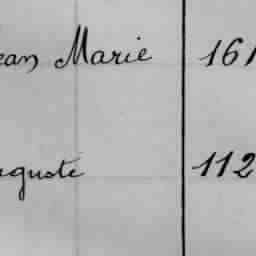 ean Marie 161
uguste 112